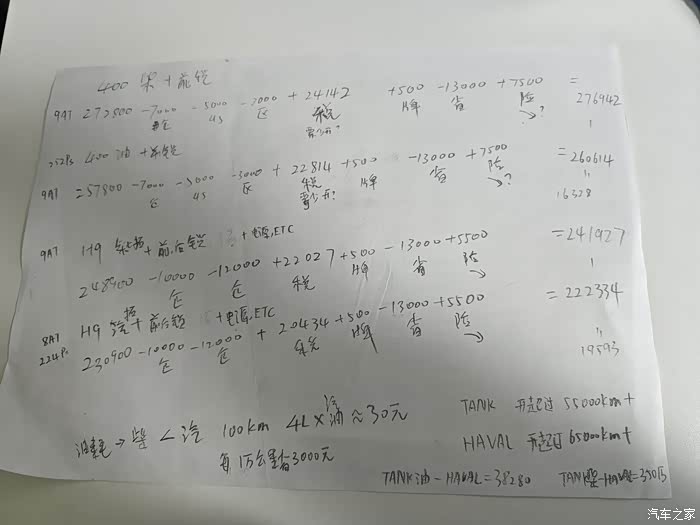 400 柴 + 前锁
9AT 272800 -7000 -5000 -3000 + 24142 +500 -13000 +7500 = 276942
仓 4S 区 税 牌 省 险 →?
252Ps 400 油 + 前锁
9AT =57800 -7000 -5000 -3000 + 22814 +500 -13000 +7500 = 260614
仓 4S 区 税 牌 省 险 →?
16328
9AT H9 柴 + 前,后锁 + 电源,ETC
248900 -10000 -12000 +22027 +500 -13000 +5500 = 241927
仓 仓 税 牌 省 险 →
8AT H9 汽 + 前后锁 + 电源,ETC
224Ps 230900 -10000 -12000 + 20434 +500 -13000 +5500 = 222334
仓 仓 税 牌 省 险 →
19593
油耗 → 柴 < 汽 100km 4L × 油 ≈ 30元
每1万公里省3000元
TANK 开超过 55000km+
HAVAL 开超过 65000km+
TANK油 - HAVAL = 38280 TANK柴 - HAVAL =
汽车之家